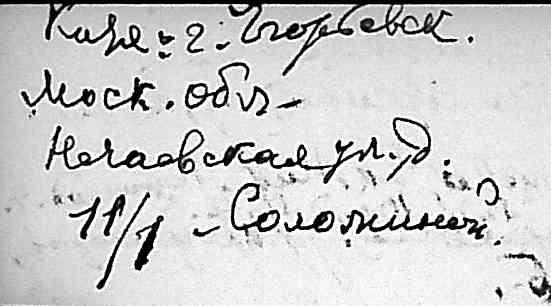 г. Егорьевск.
Моск. обл-
Нечаевская ул. д.
11/1 - Соломиной.